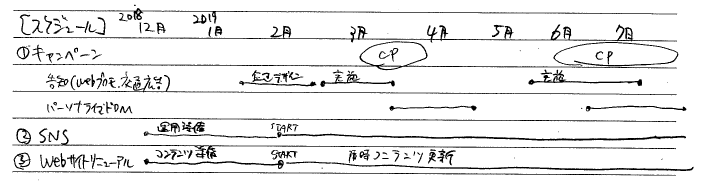 [スケジュール] 2018 12月 2019 1月 2月 3月 4月 5月 6月 7月
①キャンペーン CP CP
告知(Webプロモ、交通広告) 企画デザイン 実施 実施
パーソナライズDM
② SNS 運用準備 START
③ Webサイトリニューアル コンテンツ準備 START 随時コンテンツ更新